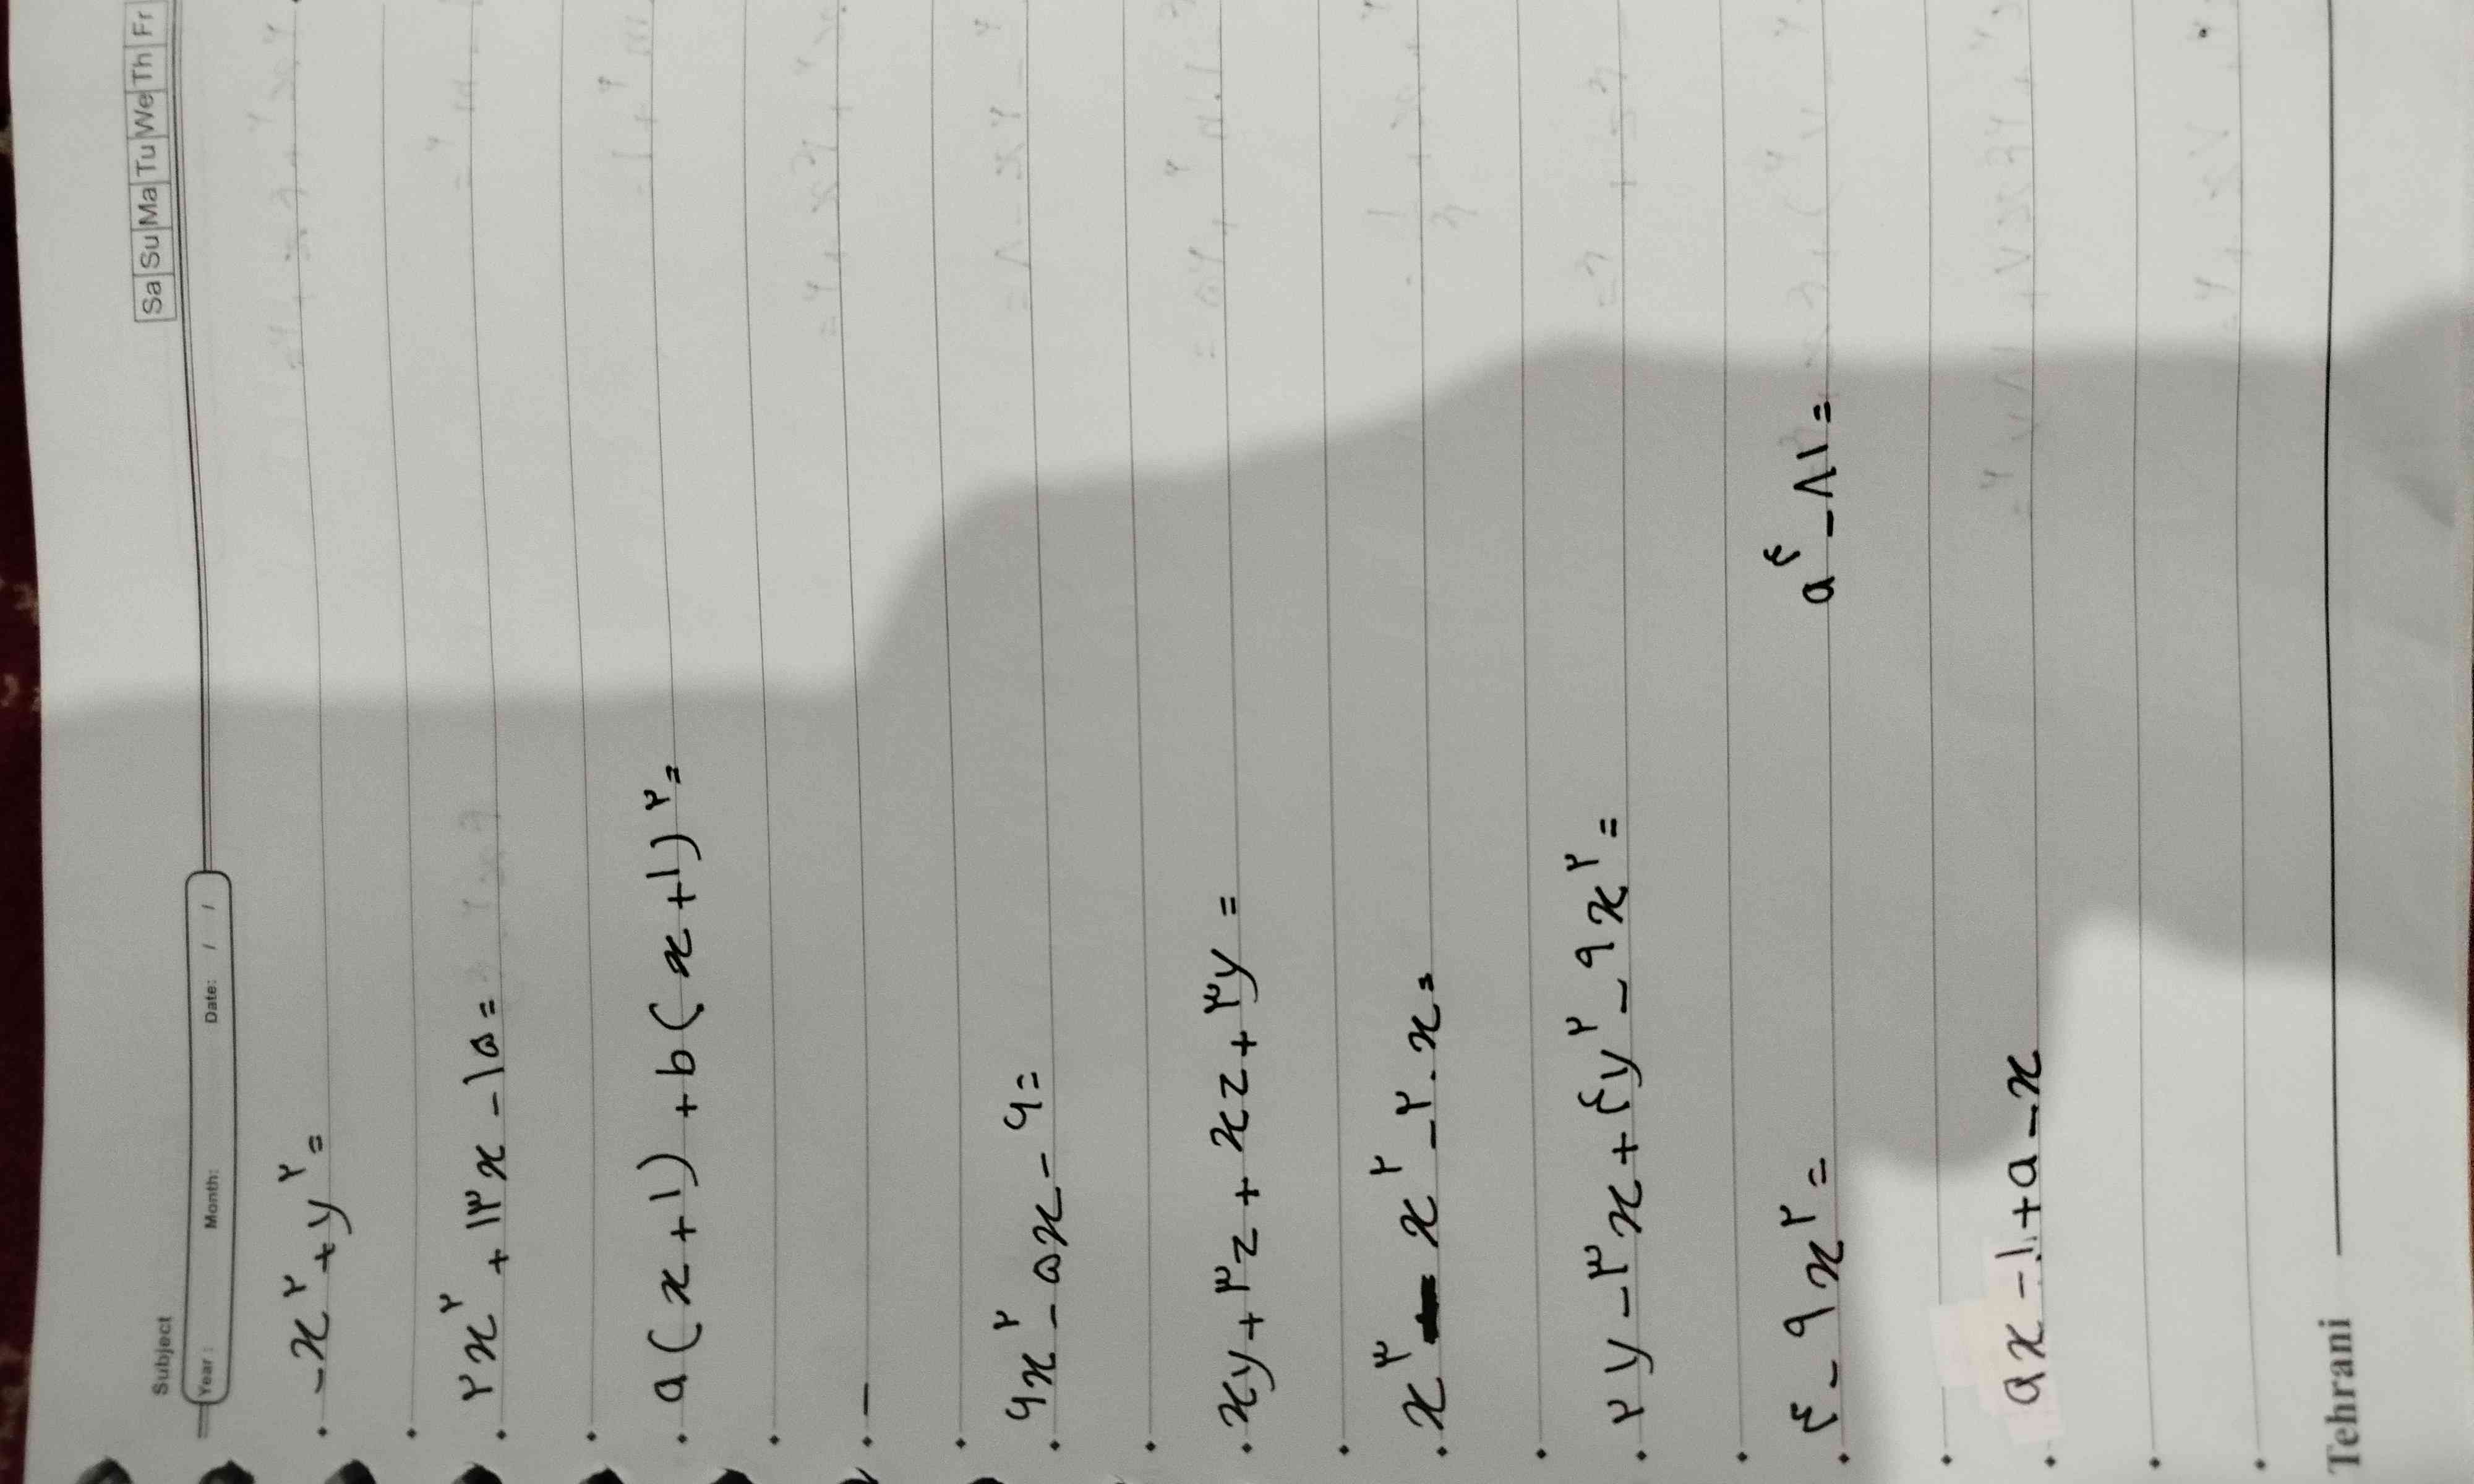 Subject
Sa Su Ma Tu We Th Fr
Year: Month: Date: / /
-x^۲ + y^۲ =
۲x^۲ + ۱۳x - ۱۵ =
a(x+۱) + b(x+۱)^۲ =
-
۶x^۲ - ۵x - ۶ =
xy + ۳z + xz + ۳y =
x^۳ - x^۲ - ۲۰x =
۲y - ۳x + ۴y^۲ - ۹x^۲ =
۴ - ۹x^۲ = a^۴ - ۸۱ =
ax - ۱ + a - x
Tehrani